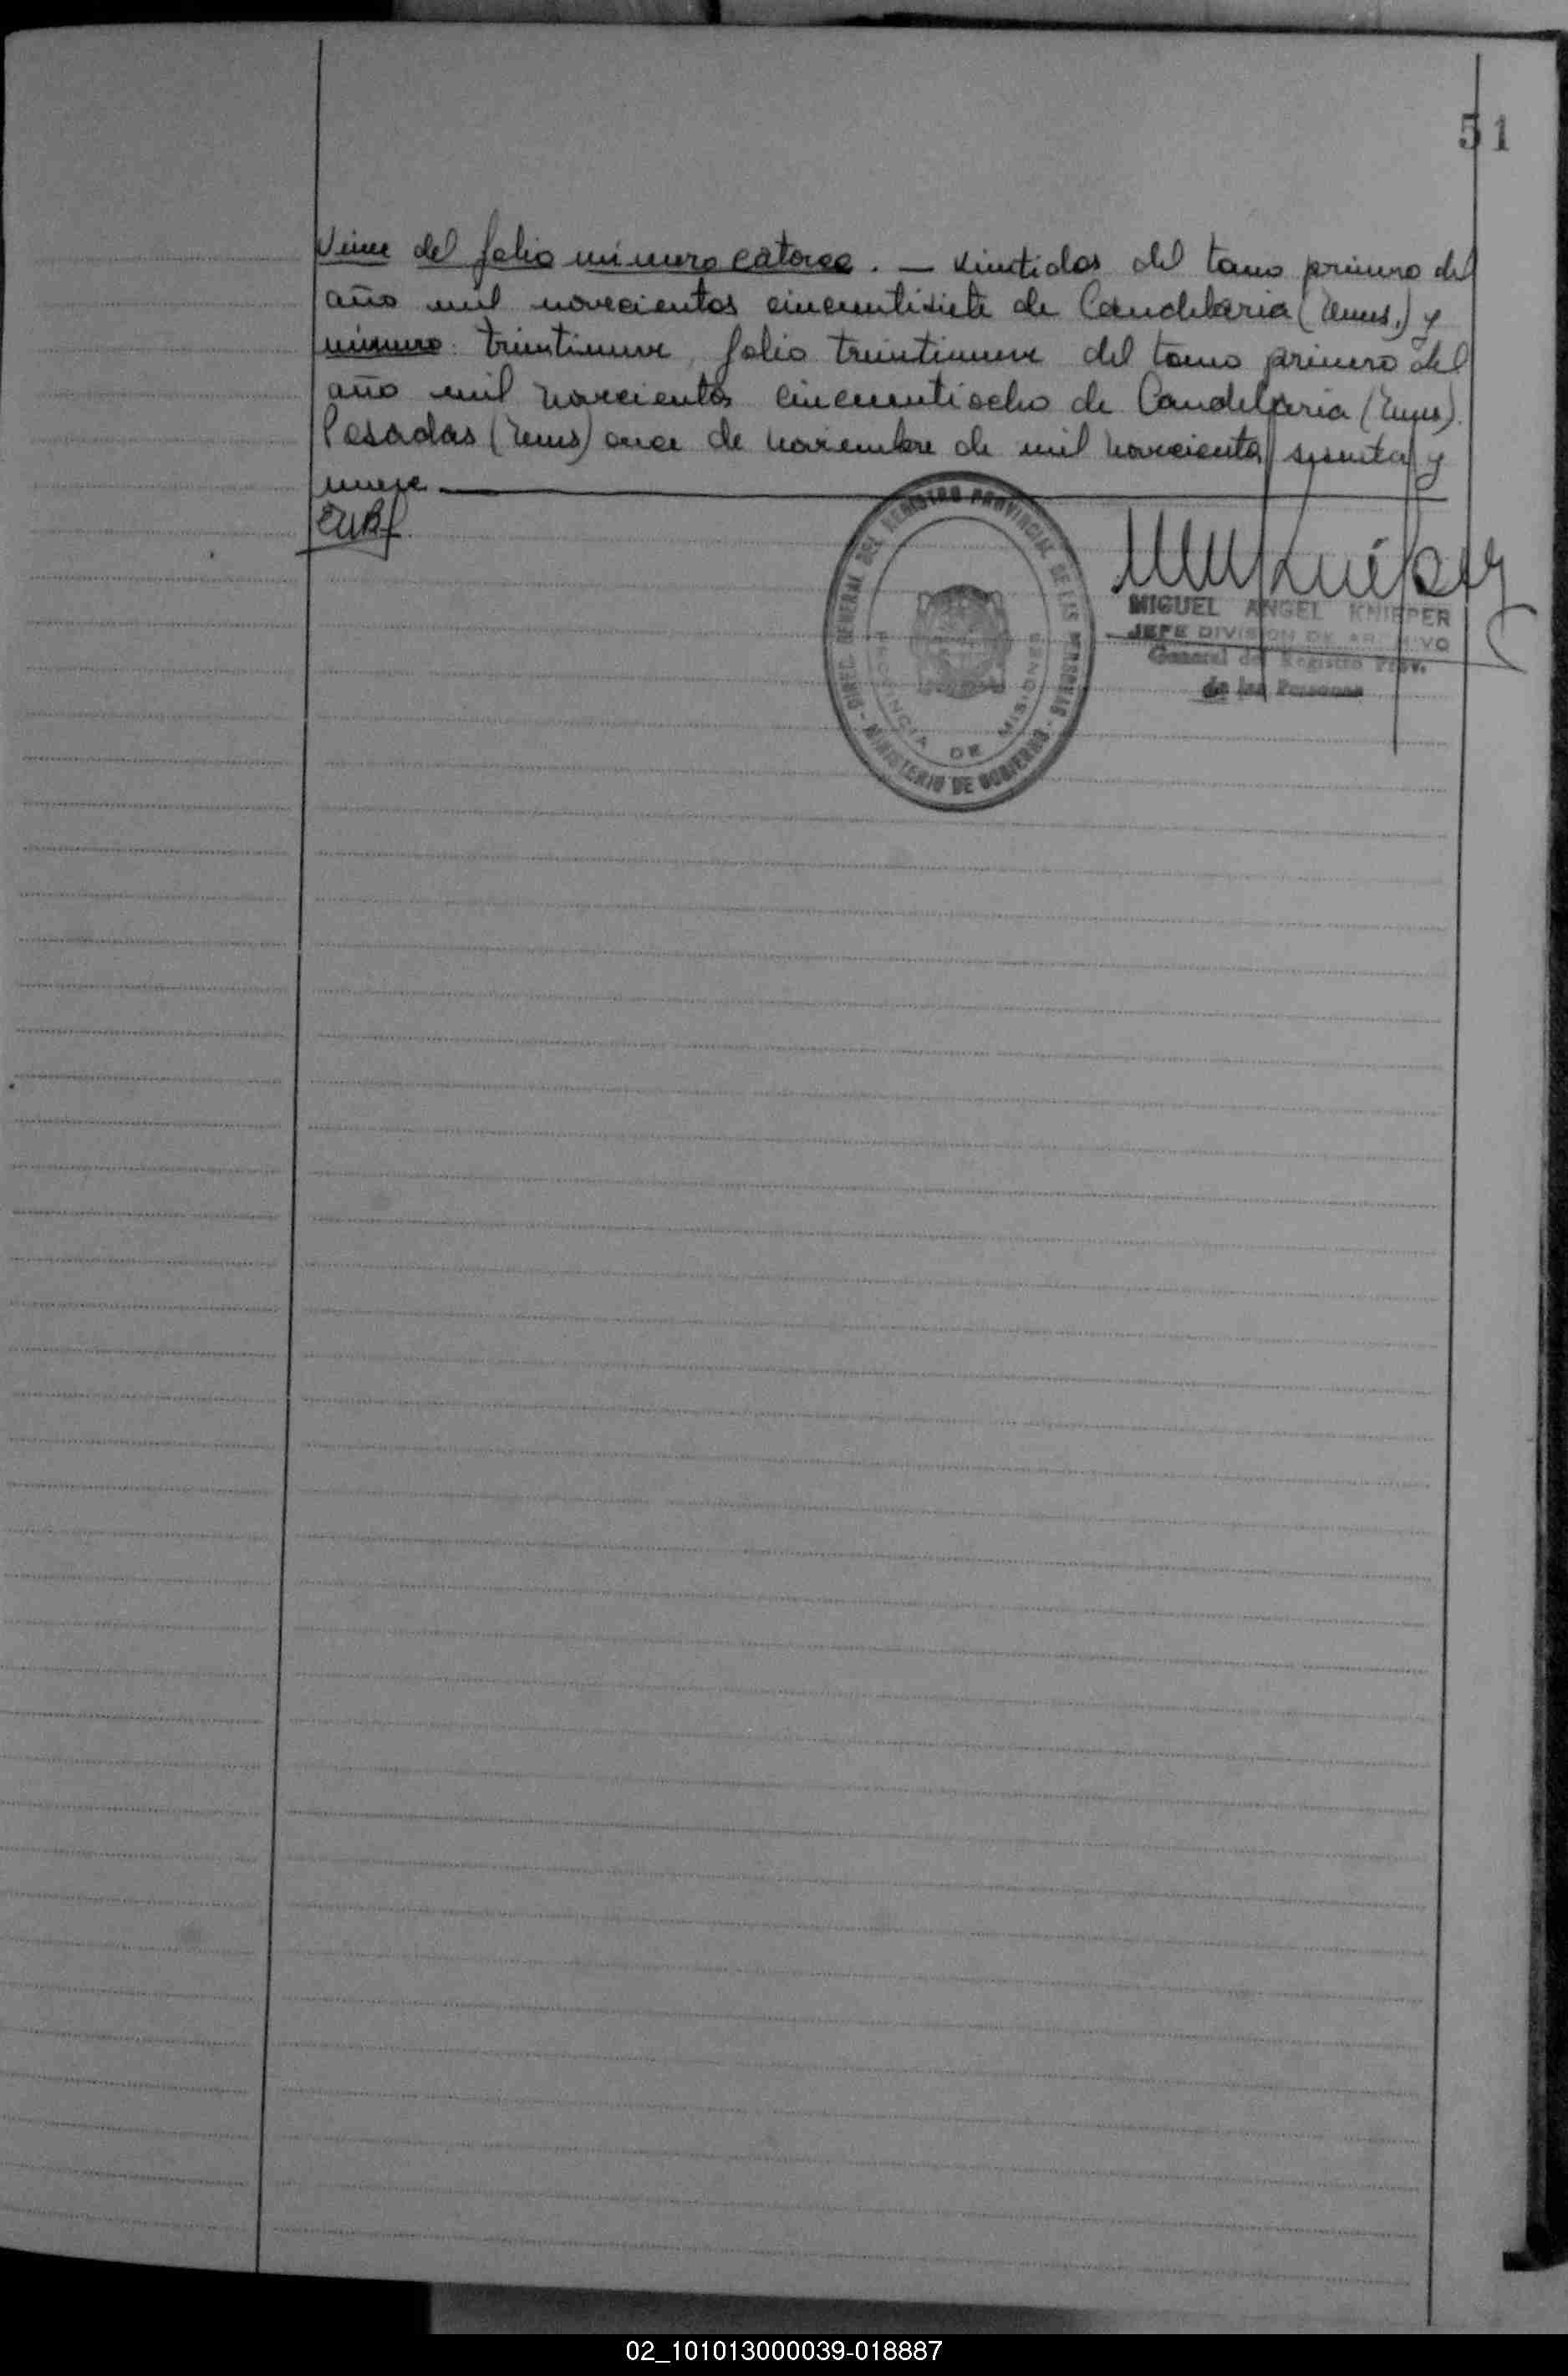 51
Viene del folio número catorce. — veintidos del tomo primero del
año mil novecientos cincuentisiete de Candelaria (Mnes.) y
número treintinueve, folio treintinueve del tomo primero del
año mil novecientos cincuentiocho de Candelaria (Mnes).
Posadas (Mnes) once de noviembre de mil novecientos sesenta y
nueve
DIREC. GENERAL DEL REGISTRO PROVINCIAL DE LAS PERSONAS - MINISTERIO DE GOBIERNO -
PROVINCIA DE MISIONES
MIGUEL ANGEL KNIEPER
JEFE DIVISION DE ARCHIVO
General del Registro Prov.
de las Personas
02_101013000039-018887